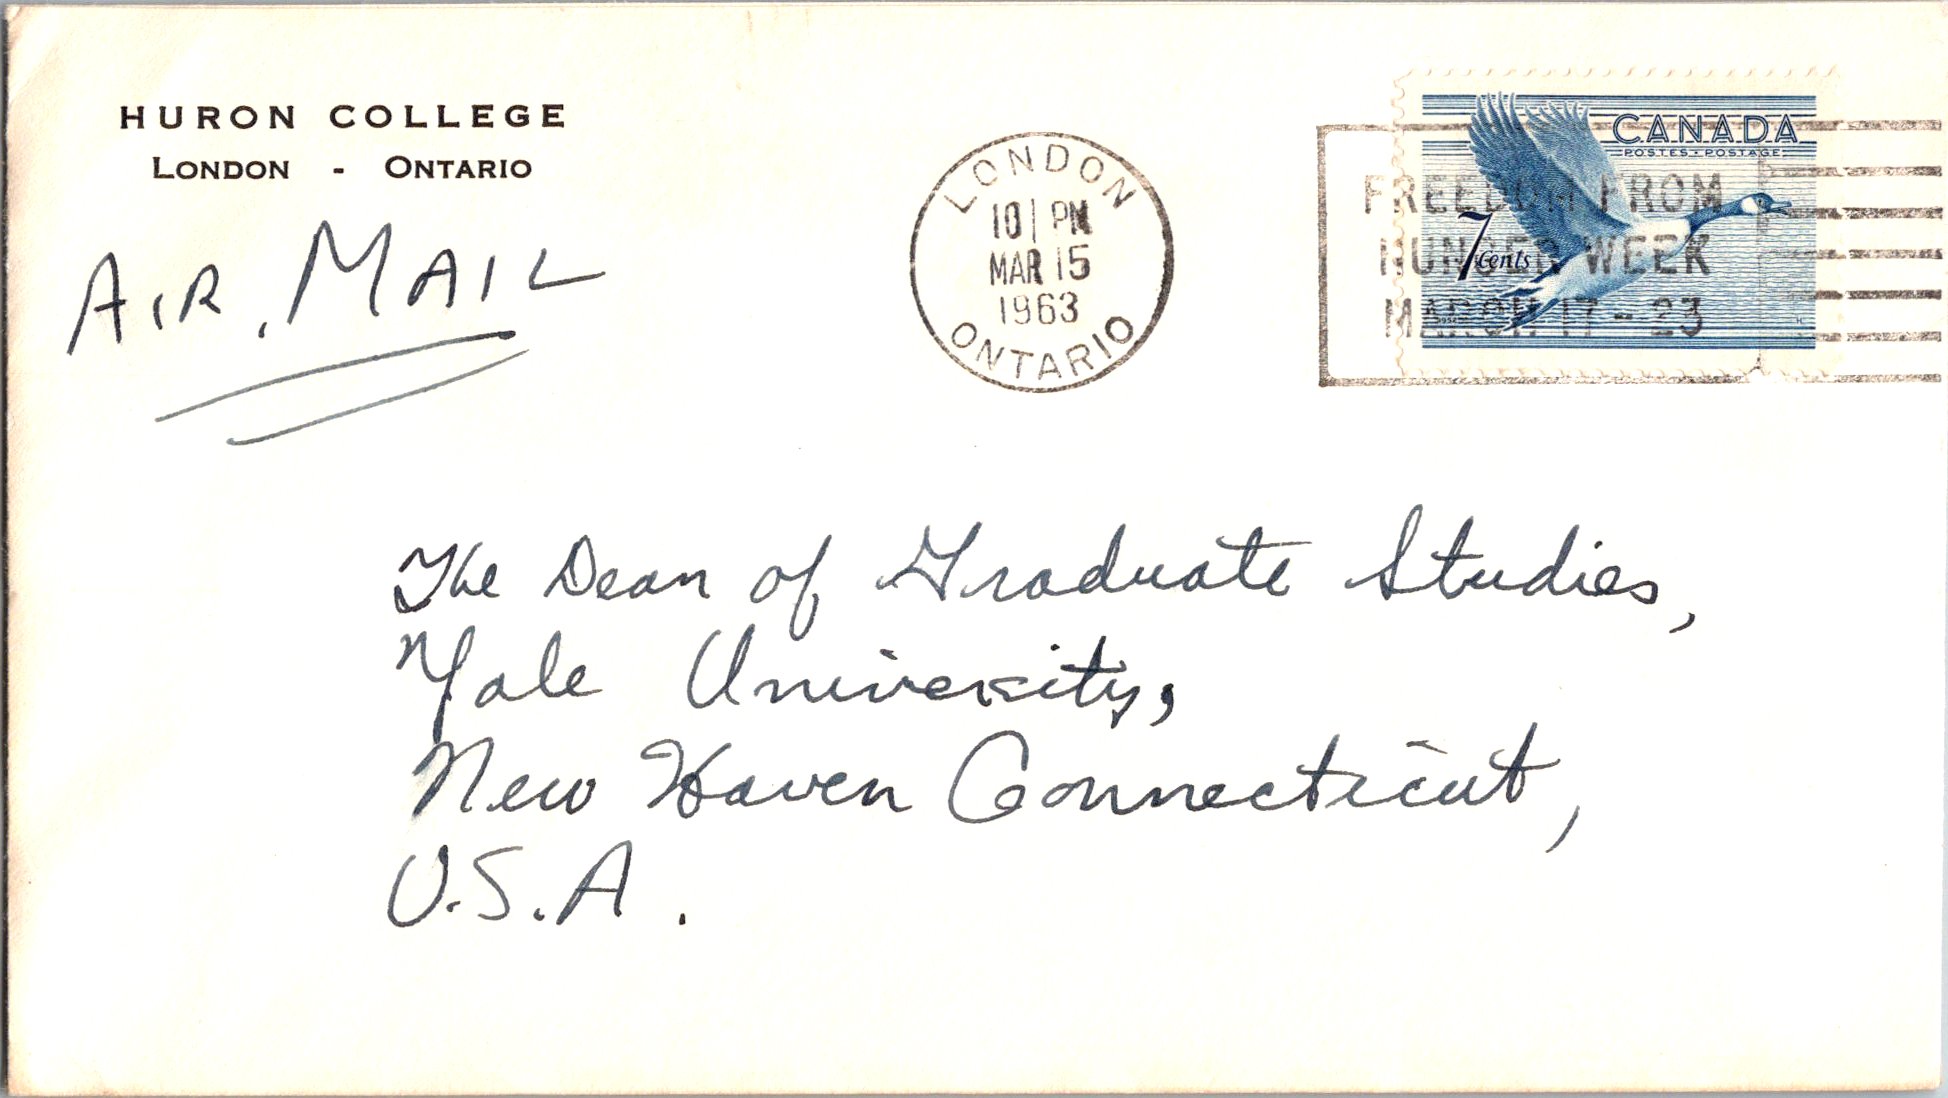 HURON COLLEGE
LONDON - ONTARIO
AIR MAIL
LONDON
10 PM
MAR 15
1963
ONTARIO
CANADA
POSTES - POSTAGE
7 Cents
FREEDOM FROM
HUNGER WEEK
MARCH 17-23
The Dean of Graduate Studies,
Yale University,
New Haven Connecticut,
U.S.A.